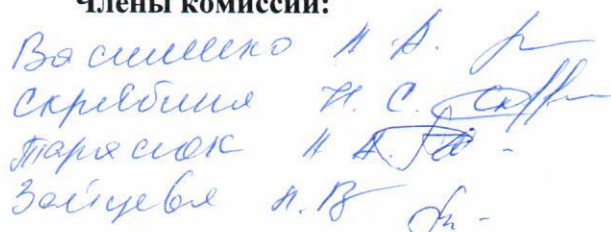 Члены комиссии:
Василенко Н. А.
Скрябина Н. С.
Тарасюк Н. А.
Зайцева Н. В.